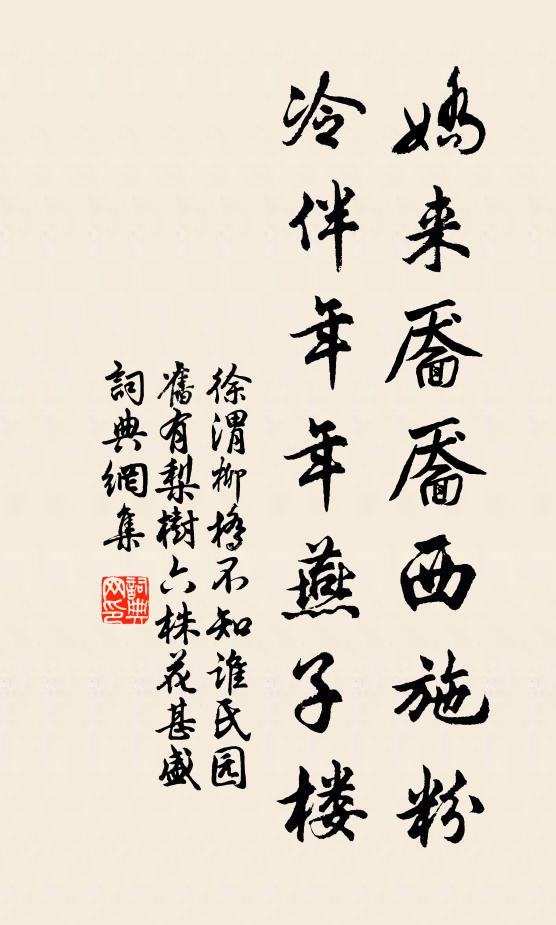 娇来靥靥西施粉
冷伴年年燕子楼
徐渭柳桥不知谁氏园
旧有梨树六株花甚盛
词典网集
词典网印